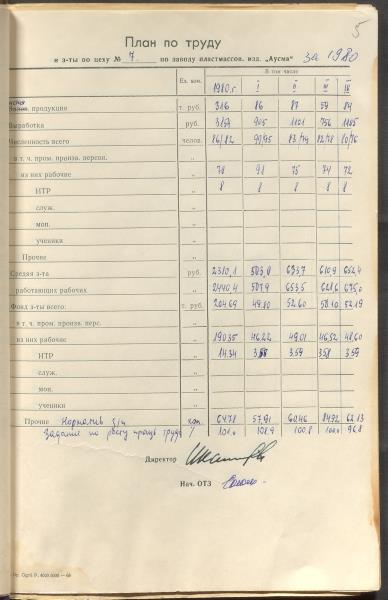 5
План по труду
и з-ты по цеху № 7 по заводу пластмасс. изд. „Аусма" за 1980
Ед. изм. В том числе
1980 г. I II III IV
продукция т. руб. 316 86 87 59 84
Выработка руб. 905 1121 756 1105
Численность всего челов. 86/82 83/79 82/78 80/76
в т. ч. пром. произв. персон. „
из них рабочие „ 78 91 75 74 72
ИТР „ 8 8 8 8 8
служ. „
моп. „
ученики „
Прочие „
Средняя з-та руб. 2310,1 610,9 652,4
работающих рабочих „ 2440,4 507,9 653,5 621,6 675,0
Фонд з-ты всего: т. руб. 204,69 49,80 52,60 50,10 52,19
в т. ч. пром. произв. перс. „
из них рабочие „ 190,35 46,22 49,01 46,52 48,60
ИТР „ 14.34 3,58 3.59 3,58 3,59
служ. „
моп. „
ученики „
Прочие Норматив з/п коп. 64,78 57,91 60,46 84,92 62,13
Задание по росту произв труда 101,0 108,9 100,8 96,8
Директор
Нач. ОТЗ